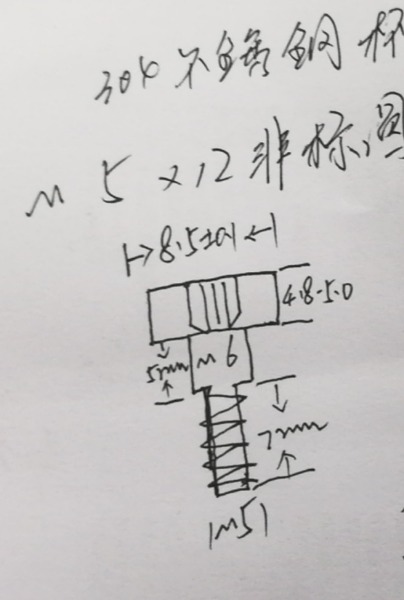 304不锈钢杯
M5×12非标圆
8.5±0.1
4.8-5.0
5mm
M6
7mm
M5